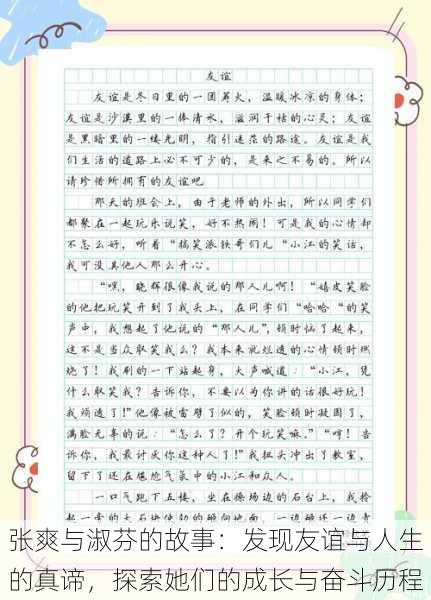 友谊
友谊是冬日里的一团篝火，温暖冰凉的身体；
友谊是沙漠里的一捧清水，滋润干枯的心灵；友谊
是黑暗里的一缕光明，指引迷茫的路途。友谊是我
们生活的道路上必不可少的，是来之不易的。所以
请珍惜所拥有的友谊吧
那天的班会上，由于老师的外出，所以同学们
都聚在一起玩乐说笑，好不热闹！可是我的心情却
不怎么好，听着“搞笑派铁哥们儿”小江的笑话，
我可没其他人那么开心。
“嘿，晓辉很像我说的那人儿啊！”嬉皮笑脸
的他把玩笑开到了我头上，在同学们“哈哈“的笑
声中，我想起了他说的“那人儿”，顿时恼了起来，
这不是当众取笑我么？我本来就烂透的心情顿时燃
烧了！我刷的一下站起身，大声喊道：“小江，凭
什么取笑我？告诉你，不要以为你讲的话很好玩！
我烦透了！”他像被雷劈了似的，笑脸顿时凝固了，
满脸无辜的说：“怎么了？开个玩笑嘛。”“哼！告
诉你，我最讨厌你这种人了！”我扭头冲出了教室，
留下了还在尴尬气氛中的小江和众人。
一口气跑下五楼，坐在操场边的石台上，我拎
张爽与淑芬的故事：发现友谊与人生
的真谛，探索她们的成长与奋斗历程